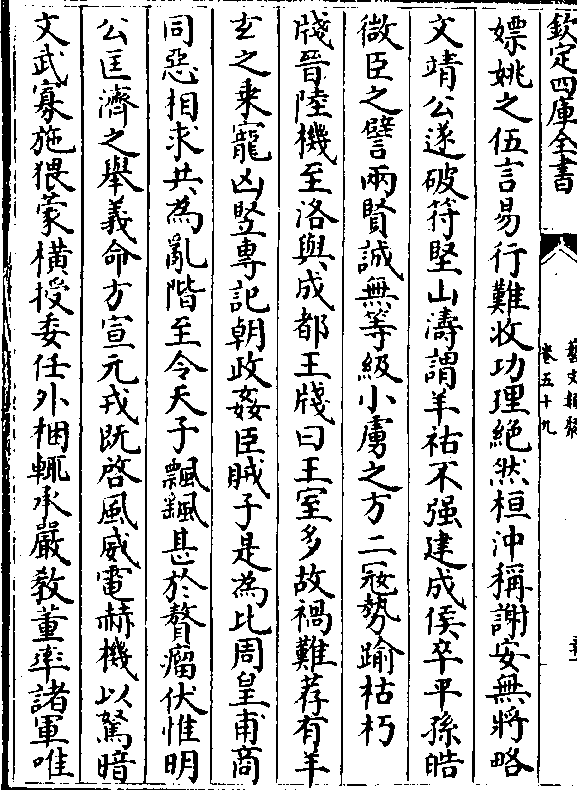 欽定四庫全書
藝文類聚
卷五十九
嫖姚之伍言易行難收功理絶然桓沖稱謝安無將略
文靖公遂破符堅山濤謂羊祜不强建成侯卒平孫皓
微臣之譬兩賢誠無等級小虜之方二冦勢踰枯朽
牋晉陸機至洛與成都王牋曰王室多故禍難荐有羊
玄之乘寵凶竪専記朝政姦臣賊子是為比周皇甫商
同惡相求共為亂階至令天子飄飖甚於贅瘤伏惟明
公匡濟之舉義命方宣元戎既啓風威電赫機以駑暗
文武寡施猥蒙横授委任外梱輒承嚴敎董率諸軍唯